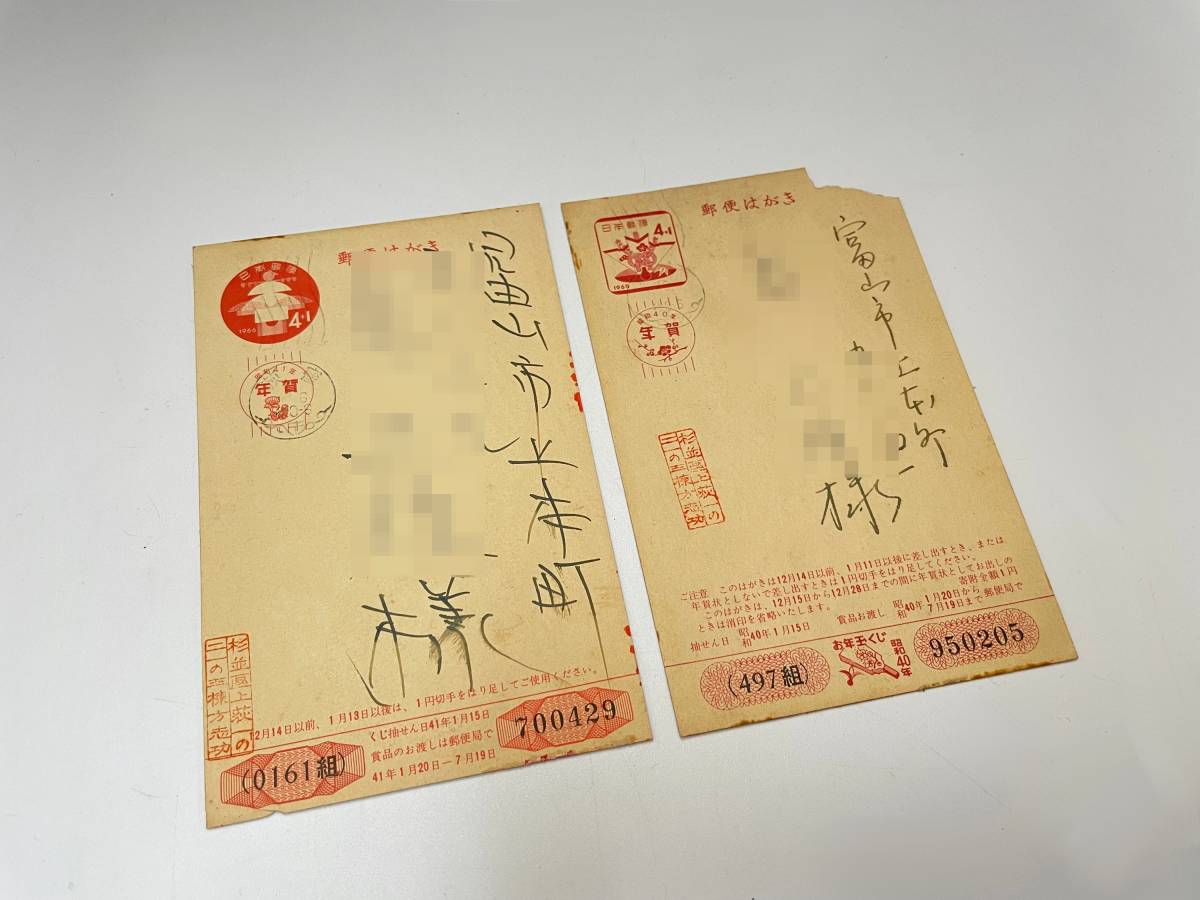 郵便はがき
日本郵便
4+1
1966
昭和41年
年賀
様
杉並区上荻一の
二一の五棟方志功
12月14日以前、1月13日以後は、1円切手をはり足してご使用ください。
くじ抽せん日41年1月15日
賞品のお渡しは郵便局で
41年1月20日—7月19日
(0161組)
700429
郵便はがき
日本郵便
4+1
1965
昭和40年
年賀
富山市
様
杉並区上荻一の
二一の五棟方志功
ご注意 このはがきは12月14日以前、1月11日以後に差し出すとき、または
年賀状としないで差し出すときは1円切手をはり足してください。
このはがきは、12月15日から12月28日までの間に年賀状としてお出しの
ときは消印を省略いたします。 寄附金額1円
抽せん日 昭和40年1月15日 賞品お渡し 昭和40年1月20日から7月19日まで郵便局で
(497組)
お年玉くじ
昭和40年
950205